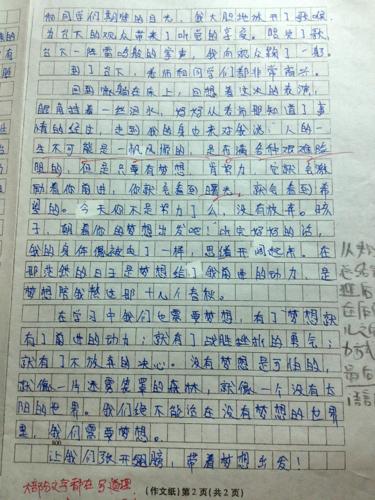 和同学们期待的目光，我大胆地放开了歌喉，
为台下的观众带来了听觉的享受。唱完了歌，
台下一阵雷鸣般的掌声，我向观众鞠了一躬。
到了台下，老师和同学们都非常高兴。
回到家躺在床上，回想着这次的表演，
眼角挂着一丝泪水，妈妈从老师那知道了事
情的经过，走到我的身边来对我说：人的一
生不可能是一帆风顺的，是布满各种艰难险
阻的，但是只要有梦想，肯努力，它就会激
励着你前进，你就会看到曙光，就会看到希
望的。今天你不是努力了么，没有放弃。孩
子，朝着你的梦想出发吧！听完妈妈的话，
我的身体像被电了一样，思绪开阔起来。在
那茫然的日子是梦想给了我前进的动力，是
梦想陪我熬过那十几个春秋。
在学习中我们也需要梦想，有了梦想就
有了前进的动力；就有了战胜挫折的勇气；
就有了不放弃的决心。没有梦想是可怕的，
就像一片迷雾笼罩的森林，就像一个没有太
阳的世界。我们绝不能活在没有梦想的世界
里，我们需要梦想。
800
让我们张开翅膀，带着梦想出发！
（作文纸）第2页（共2页）
大部分文字都在写道理